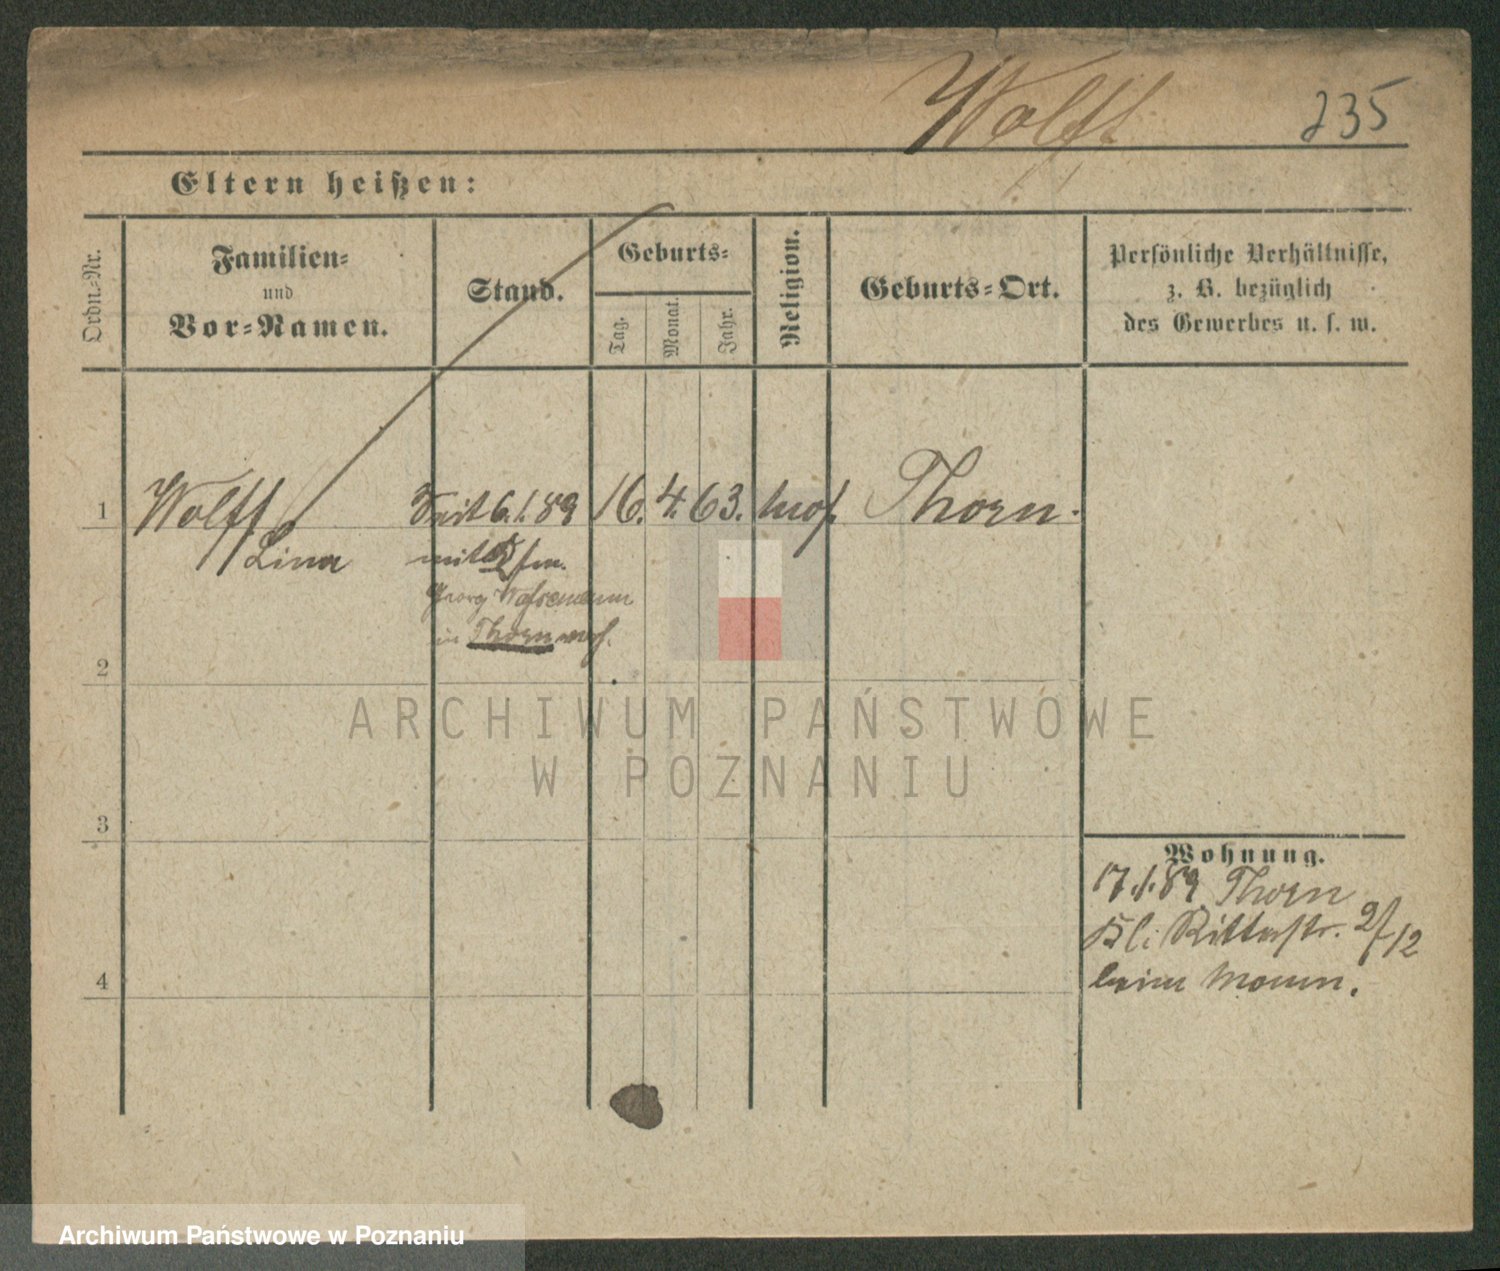 Wolff 235
Eltern heißen:
Ordn.-Nr.
Familien-
und
Vor-Namen.
Stand.
Geburts-
Tag.
Monat.
Jahr.
Religion.
Geburts-Ort.
Persönliche Verhältnisse,
z. B. bezüglich
des Gewerbes u. s. w.
1 Wolff Seit 6.1.89 16. 4. 63. mos. Thorn.
Lina mit Kfm.
Georg
in Thorn
2
ARCHIWUM PAŃSTWOWE
W POZNANIU
3
Wohnung.
17.1.89 Thorn
Kl. Ritterstr. 2/12
4
Archiwum Państwowe w Poznaniu